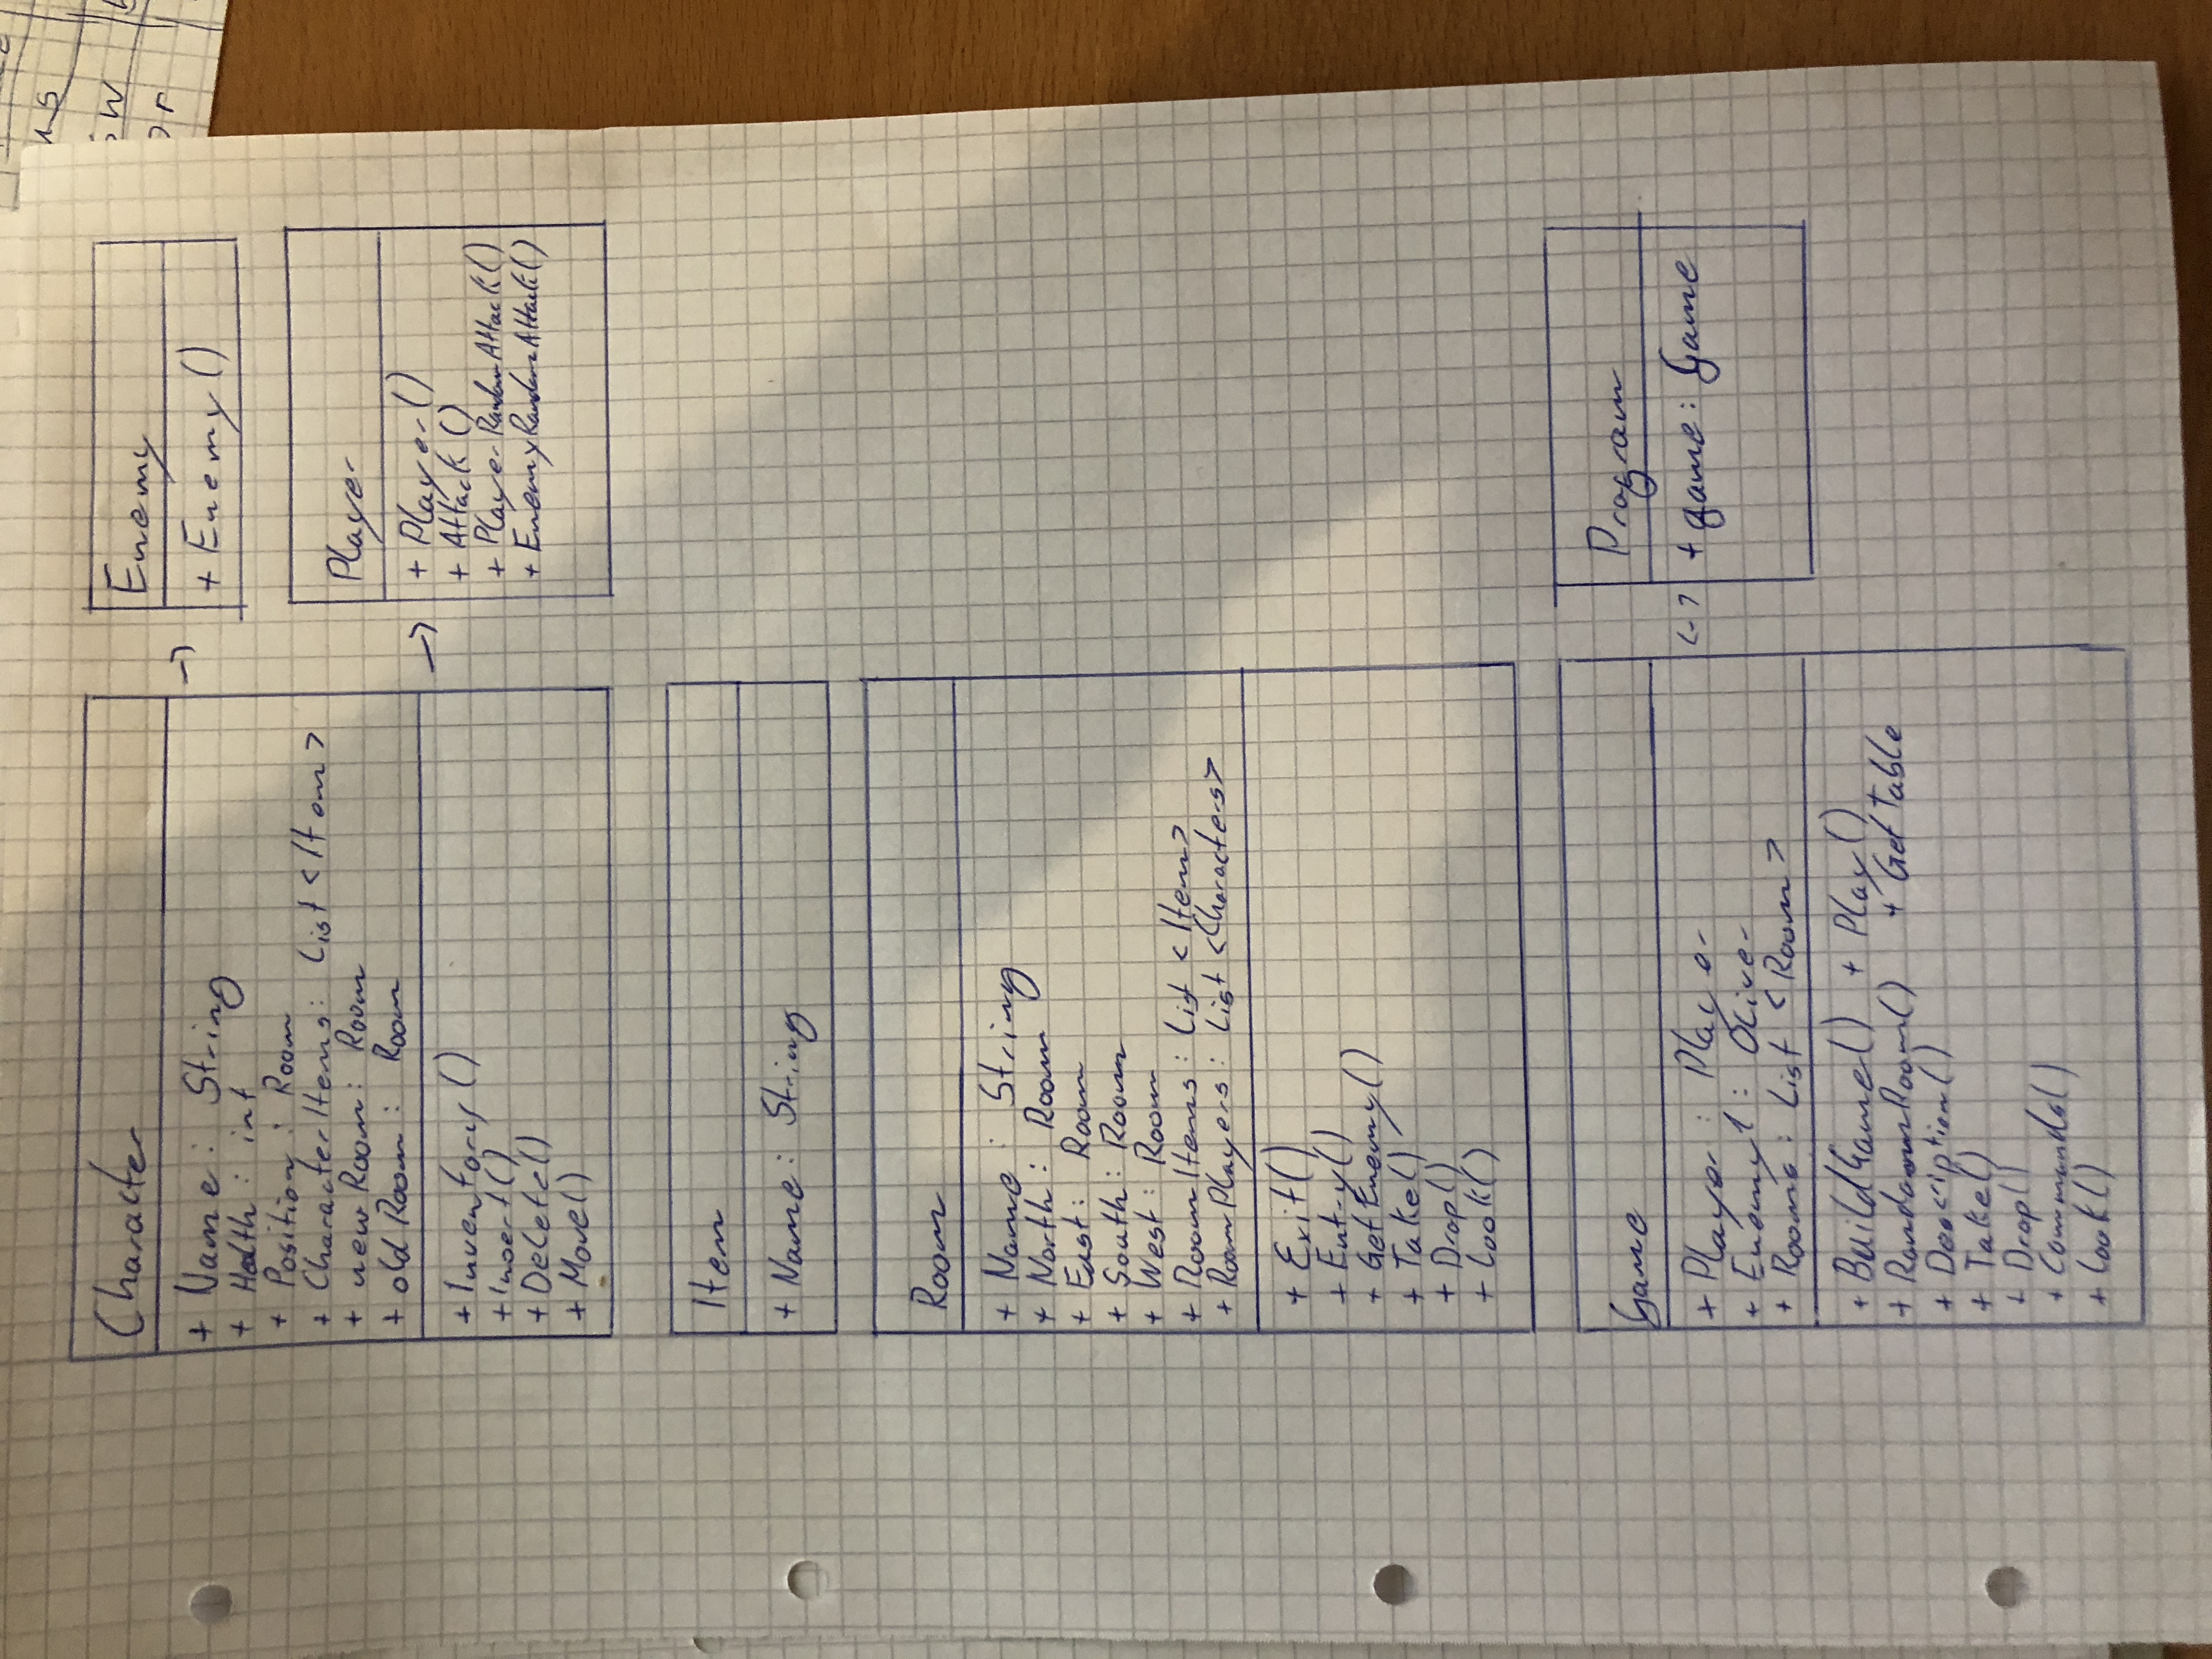 Character
+ Name : String
+ Health : int
+ Position : Room
+ CharacterItems : List <Item>
+ newRoom : Room
+ oldRoom : Room
+ Inventory ()
+ Insert ()
+ Delete ()
+ Move ()
→
Enemy
+ Enemy ()
→
Player
+ Player ()
+ Attack ()
+ PlayerRandomAttack ()
+ EnemyRandomAttack ()
Item
+ Name : String
Room
+ Name : String
+ North : Room
+ East : Room
+ South : Room
+ West : Room
+ RoomItems : List <Item>
+ RoomPlayers : List <Characters>
+ Exit ()
+ Entry ()
+ GetEnemy ()
+ Take ()
+ Drop ()
+ Look ()
Game
+ Player : Player
+ Enemy1 : Oliver
+ Rooms : List <Room>
+ BuildGame () + Play ()
+ RandomRoom () + GetTable
+ Description ()
+ Take ()
+ Drop ()
+ Commands ()
+ Look ()
<->
Program
+ game : Game
us
sw
or